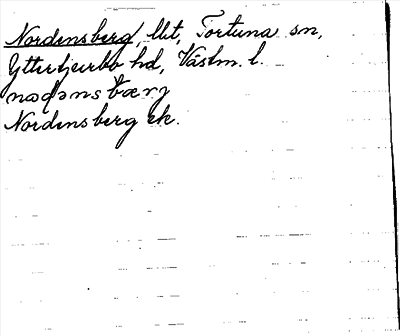 Nordensberg, Ut, Tortuna sn,
Yttertjurbo hd, Västm. l.
Nordensberg ek.